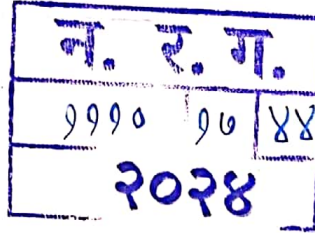 न. र. ग.
११९० १७ ४४
२०२४